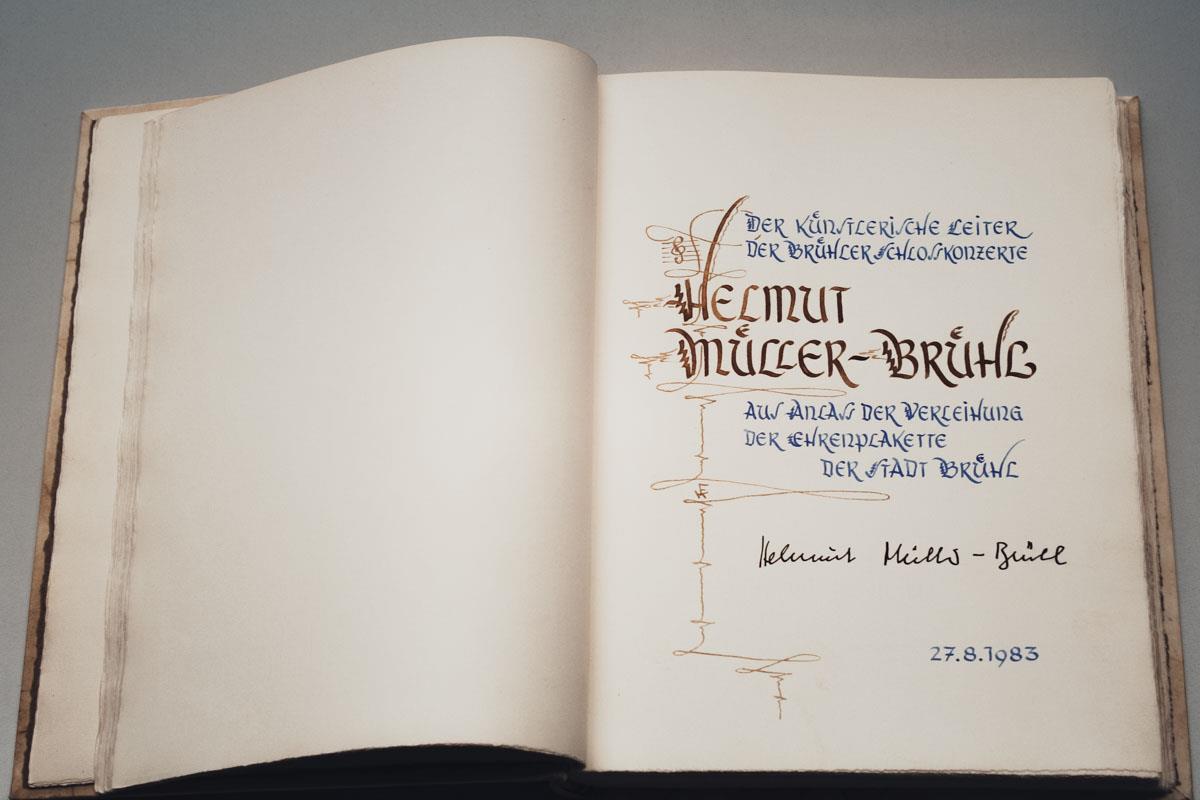 DER KÜNSTLERISCHE LEITER
DER BRÜHLER SCHLOSSKONZERTE
HELMUT
MÜLLER-BRÜHL
AUS ANLASS DER VERLEIHUNG
DER EHRENPLAKETTE
DER STADT BRÜHL
Helmut Müller-Brühl
27.8.1983